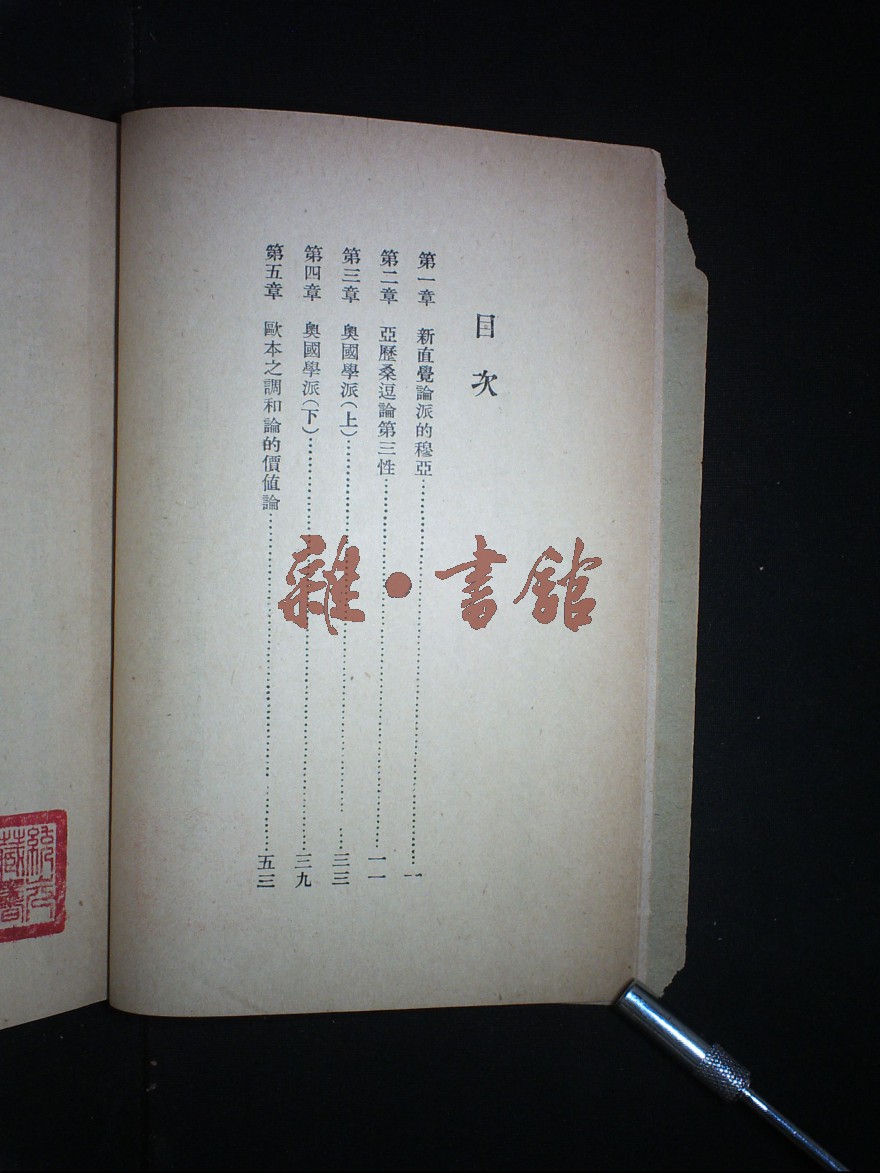 目次
第一章 新直覺論派的穆亞……一
第二章 亞歷桑逗論第三性……一一
第三章 奧國學派(上)……三三
第四章 奧國學派(下)……三九
第五章 歐本之調和論的價值論……五三
雜·書館
藏書